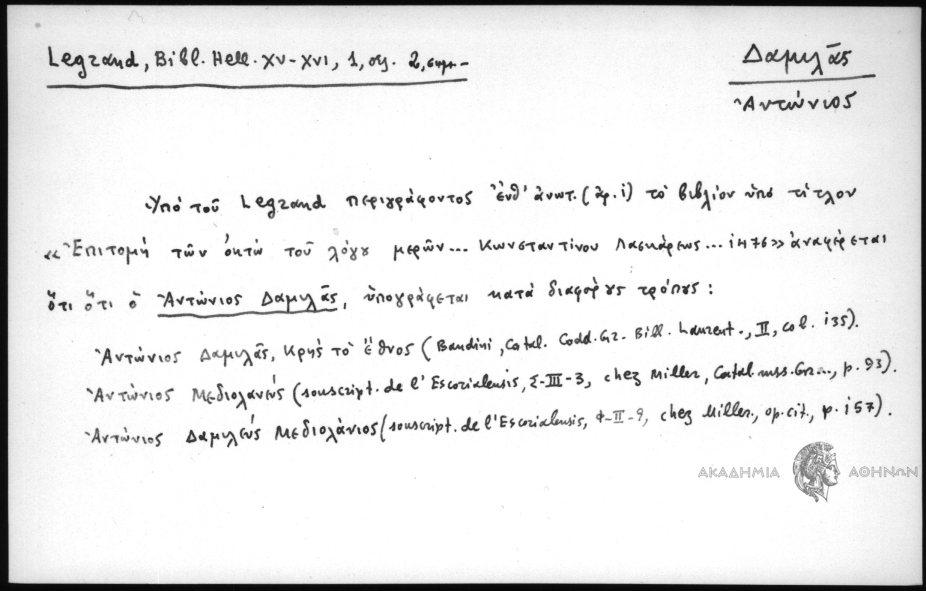 Legrand, Bibl. Hell. XV-XVI, 1, σελ. 2, σημ.-
Δαμιλᾶς
Ἀντώνιος
Ὑπό τοῦ Legrand περιγράφοντος ἐνθ' ἀνωτ. (ἀρ. 1) τὸ βιβλίον ὑπό τίτλον
«Ἐπιτομή τῶν ὀκτώ τοῦ λόγου μερῶν... Κωνσταντίνου Λασκάρεως... 1476» ἀναφέρεται
ὅτι ὅτι ὁ Ἀντώνιος Δαμιλᾶς, ὑπογράφεται κατά διαφόρους τρόπους:
Ἀντώνιος Δαμιλᾶς, Κρής τὸ ἔθνος (Bandini, Catal. Codd. Gr. Bibl. Laurent., II, col. 135).
Ἀντώνιος Μεδιολανεύς (souscript. de l'Escorialensis, Σ-III-3, chez Miller, Catal. mss. Gr..., p. 93).
Ἀντώνιος Δαμιλεύς Μεδιολάνιος (souscript. de l'Escorialensis, Φ-II-9, chez Miller, op. cit., p. 157).
ΑΚΑΔΗΜΙΑ ΑΘΗΝΩΝ